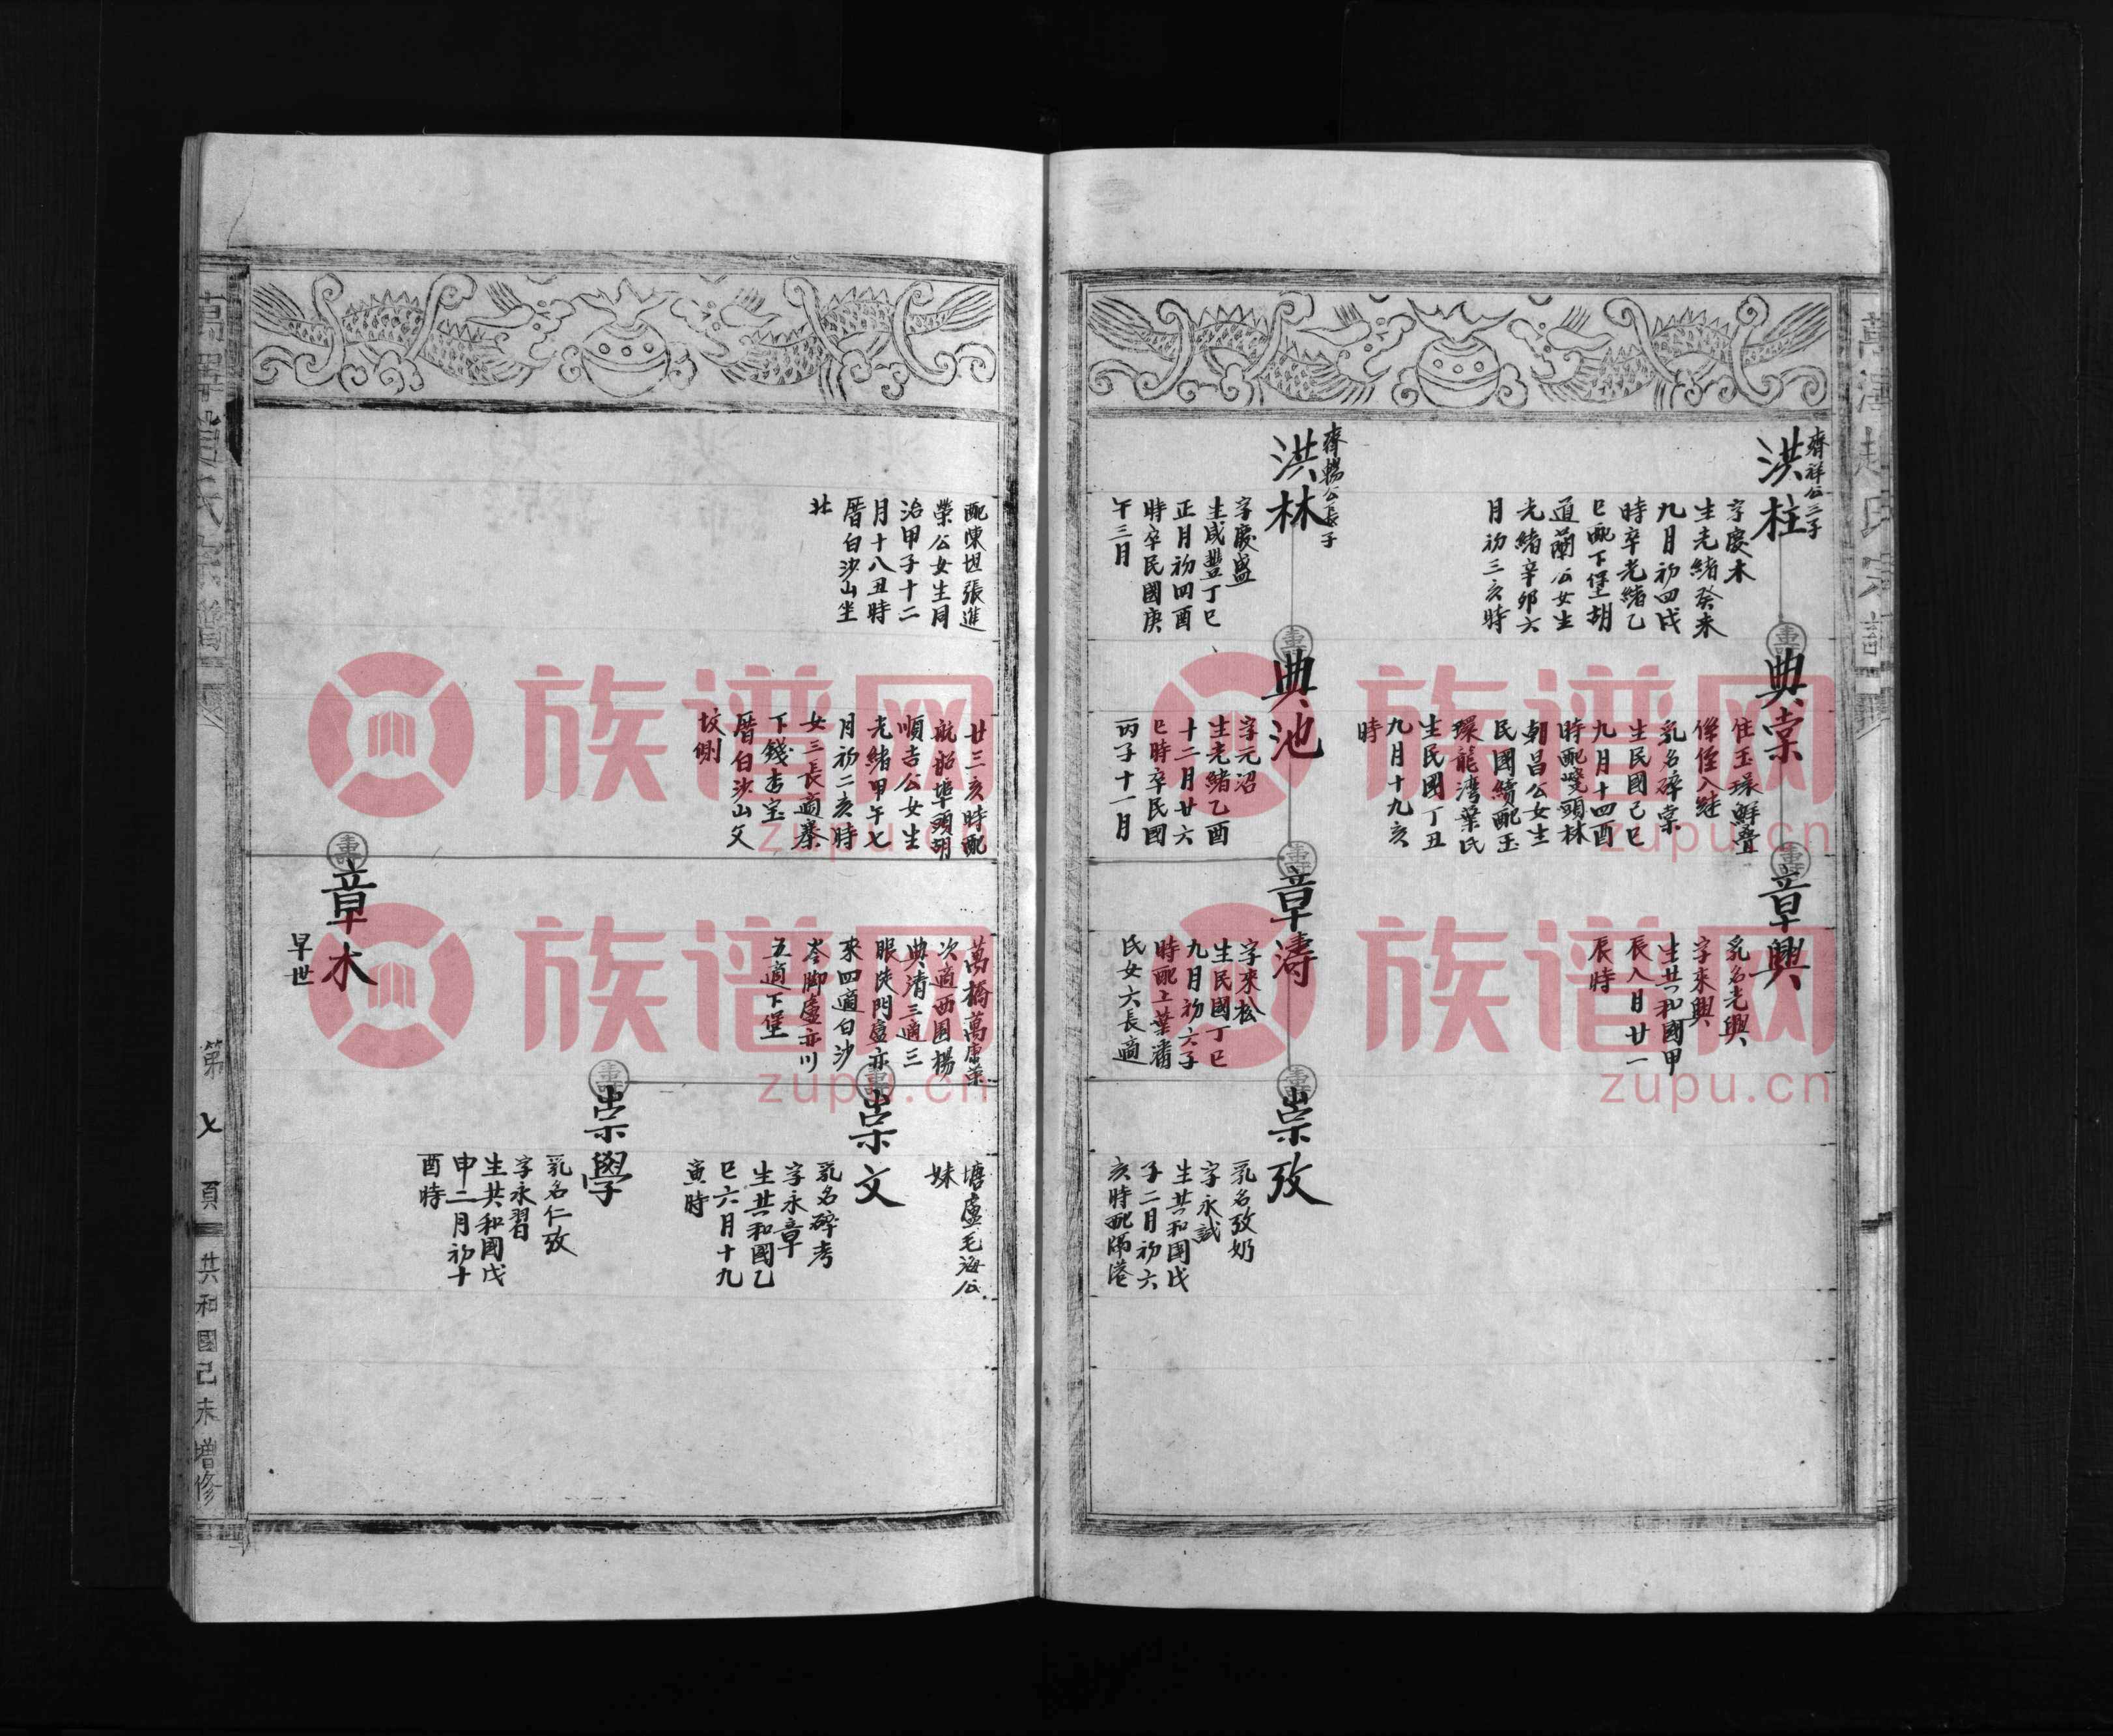 洪柱
齊祥公三子
字慶木
生光緒癸未
九月初四戌
時卒光緒乙
巳配下堡胡
道蘭公女生
光緒辛卯六
月初三亥時
典棠
住玉環鮮疊
俊侄入継
乳名碎棠
生民國己巳
九月十四酉
時配嘐頭林
朝昌公女生
民國續配玉
環龍湾葉氏
生民國丁丑
九月十九亥
時
章興
乳名光興
字來興
生共和國甲
辰八月廿一
辰時
洪林
齊暢公長子
字慶盛
生咸豐丁巳
正月初四酉
時卒民國庚
午三月
典池
字元沼
生光緒乙酉
十二月廿六
巳時卒民國
丙子十一月
章濤
字來松
生民國丁巳
九月初六子
時配上葉潘
氏女六長適
崇攷
乳名攷奶
字永試
生共和國戊
子二月初六
亥時配隔港
配陳坦張進
榮公女生同
治甲子十二
月十八丑時
厝白沙山坐
北
廿三亥時配
航船埠頭胡
順吉公女生
光緒甲午七
月初二亥時
女三長適寨
下錢杏宝
厝白沙山父
坟側
萬橋萬康榮
次適西園楊
典清三適三
眼陡門盧亦
來四適白沙
岺脚盧亦川
五適下堡
塘盧毛海公
妹
崇文
乳名碎考
字永章
生共和國乙
巳六月十九
寅時
崇學
乳名仁攷
字永習
生共和國戊
申二月初十
酉時
章木
早世
第七頁
共和國己未增修
族谱网
zupu.cn
族谱网
zupu.cn
族谱网
zupu.cn
族谱网
zupu.cn